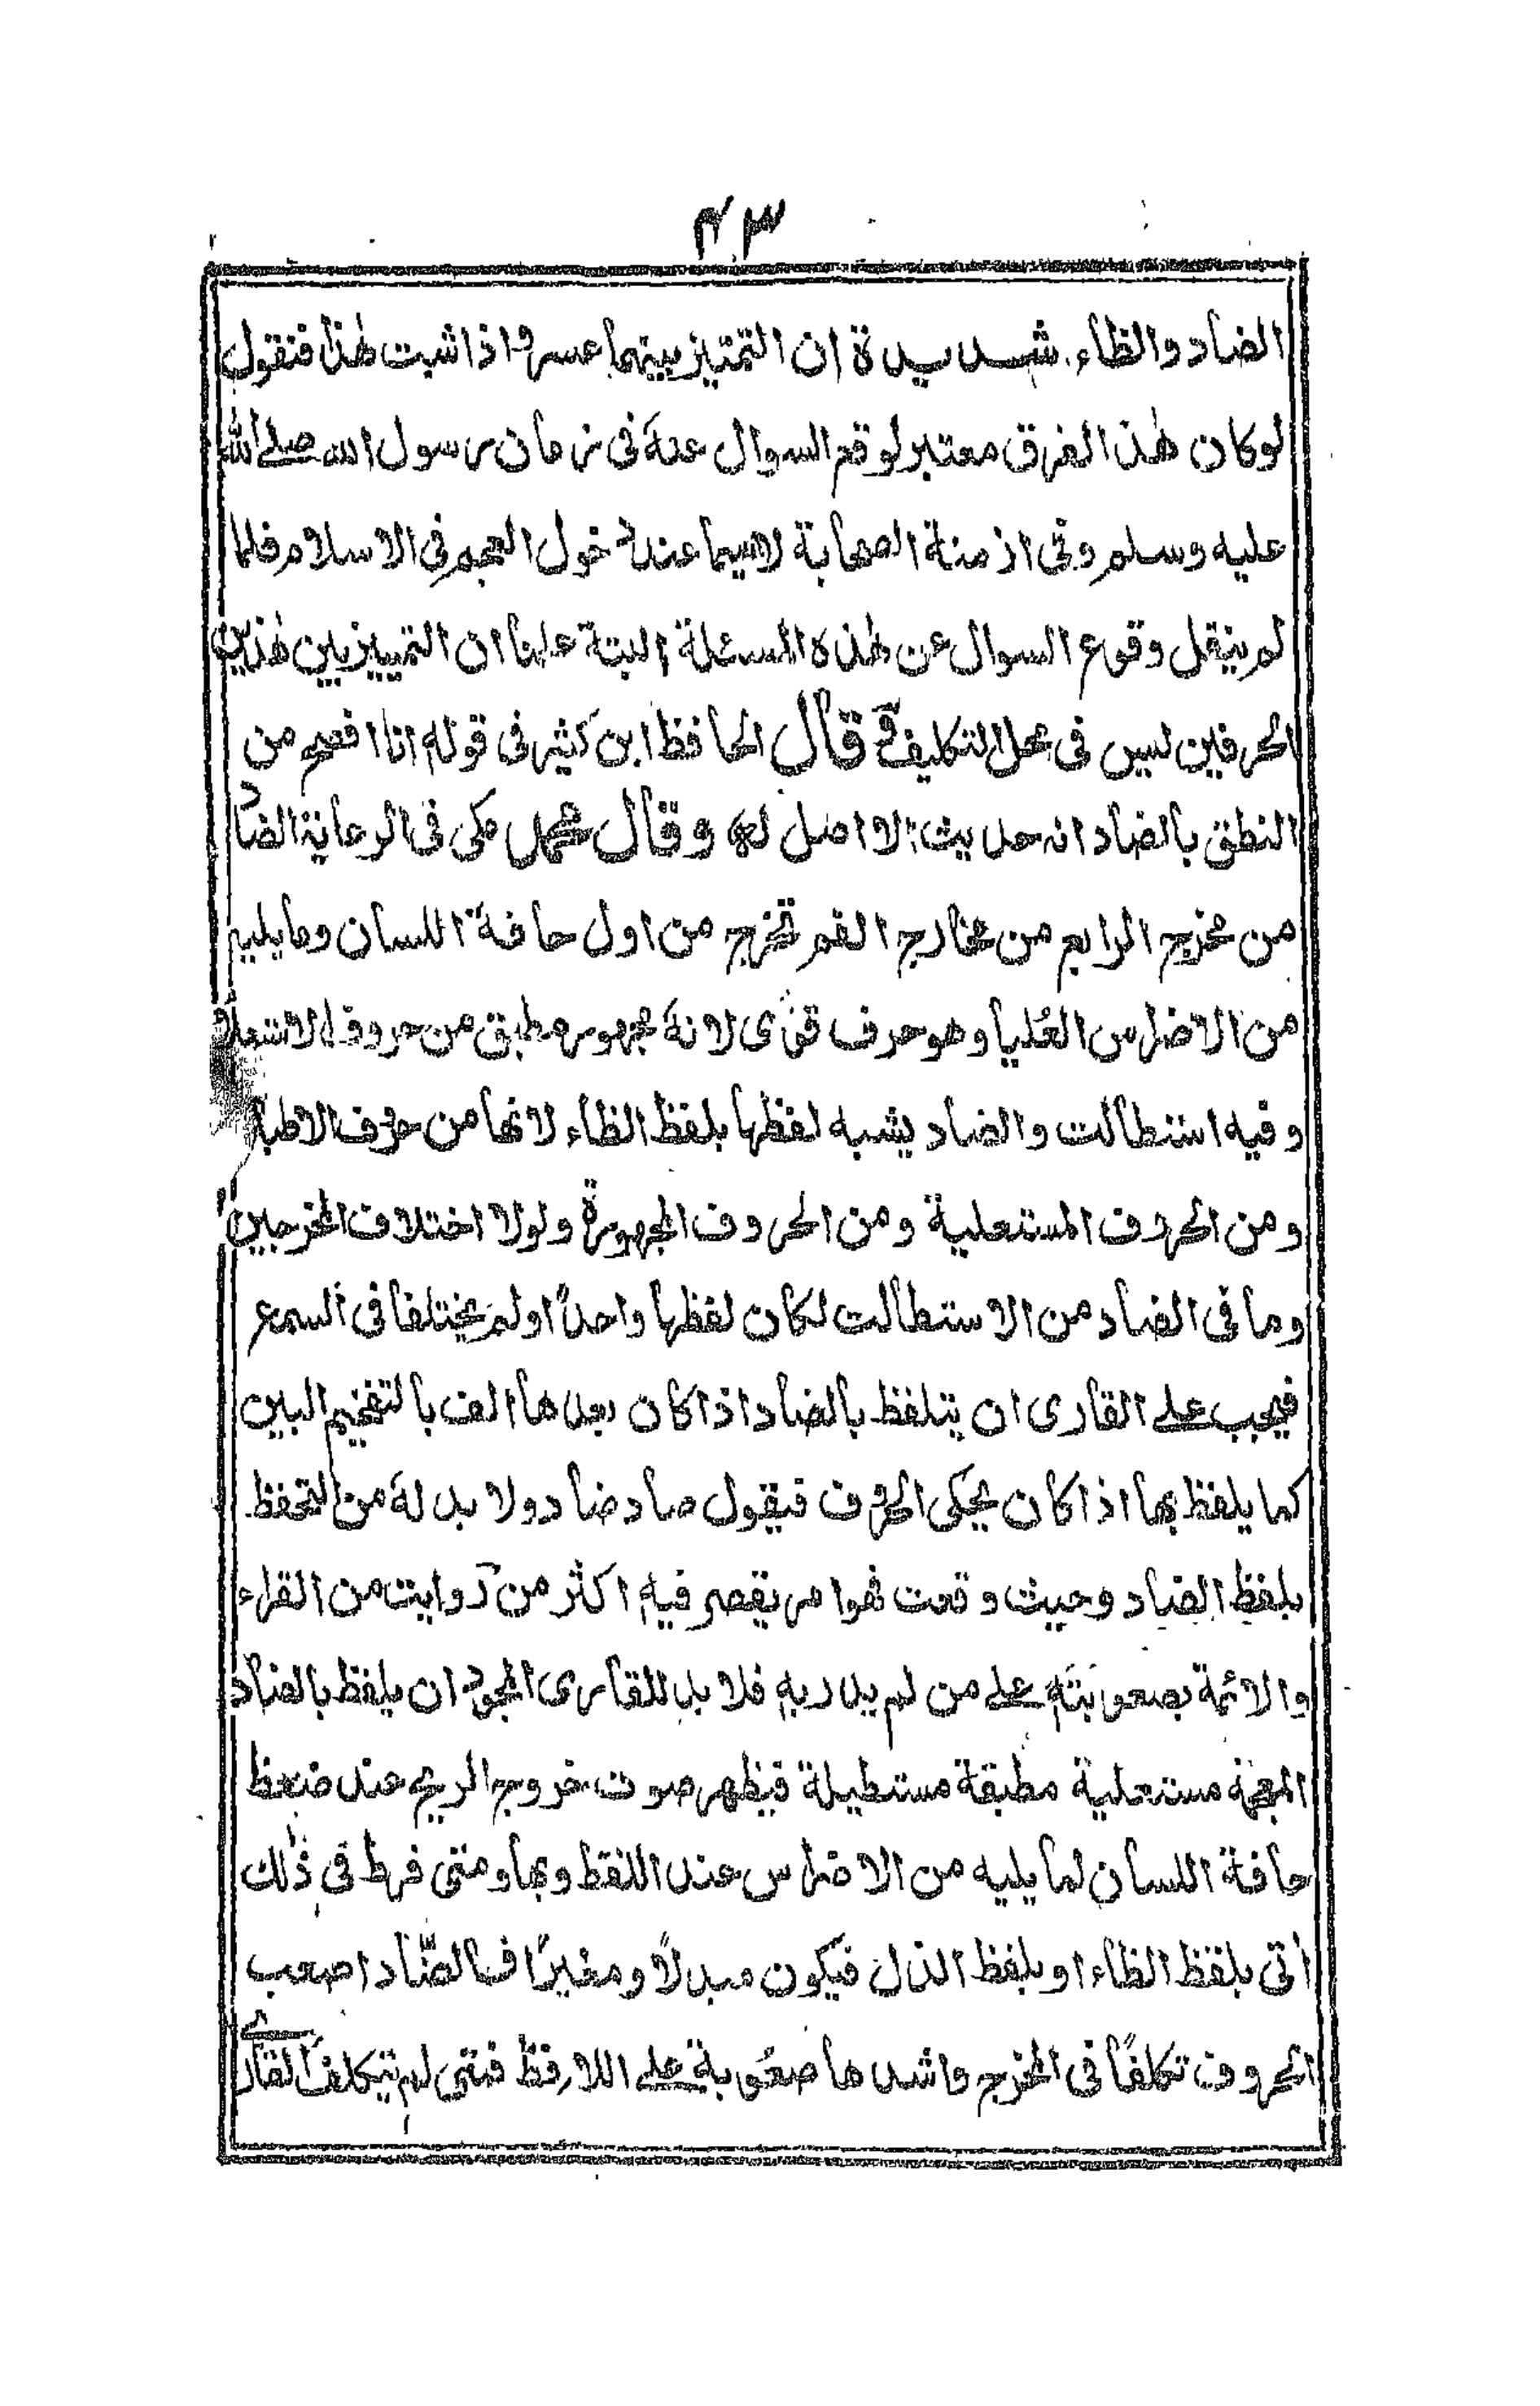 ۴۳
الضاد والظاء شديدة ان التمييز بينهما عسر و اذا ثبت هٰذا فنقول
لو كان هٰذا الفرق معتبر لوقع السوال عنه فى زمان رسول الله صلے الله
عليه وسلم وفى ازمنة الصحابة لاسيما عند دخول العجم فى الاسلام فلما
لم ينقل وقوع السوال عن هٰذه المسئلة البتة علمنا ان التمييز بين هٰذين
الحرفين ليس فى محل التكليف و قال الحافظ ابن كثير فى قوله انا افصح من
النطق بالضاد انه حديث لا اصل له و قال محمد مكى فى الرعاية الضاد
من مخرج الرابع من مخارج الفم تخرج من اول حافة اللسان وما يليه
من الاضراس العُليا وهو حرف قوى لانه مجهور مطبق من حروف الاستعلاء
وفيه استطالت والضاد يشبه لفظها بلفظ الظاء لانها من حروف الاطباق
ومن الحروف المستعلية ومن الحروف المجهورة ولولا اختلاف المخرجين
وما فى الضاد من الاستطالت لكان لفظها واحدًا ولم يختلفا فى السمع
فيجب على القارى ان يتلفظ بالضاد اذا كان بعدها الف بالتفخيم البين
كما يلفظ بها اذا كان يحكى الحروف فيقول صاد ضاد ولا بد له من التحفظ
بلفظ الضاد وحيث وقعت فهوا مر يقصر فيه اكثر من روايت من القراء
والائمة بصعوبته على من لم يدر به فلا بد للقارى المجود ان يلفظ بالضاد
المعجمة مستعلية مطبقة مستطيلة فيظهر صوت خروج الريح عند ضغط
حافة اللسان لما يليه من الاضراس عند اللفظ وبها ومتى فرط فى ذٰلك
اتى بلفظ الظاء او بلفظ الذال فيكون مبدلًا ومغيرًا فالضّاد اصعب
الحروف تكلفًا فى المخرج واشدها صعُوبة على اللافظ فمتى لم يتكلف القارے